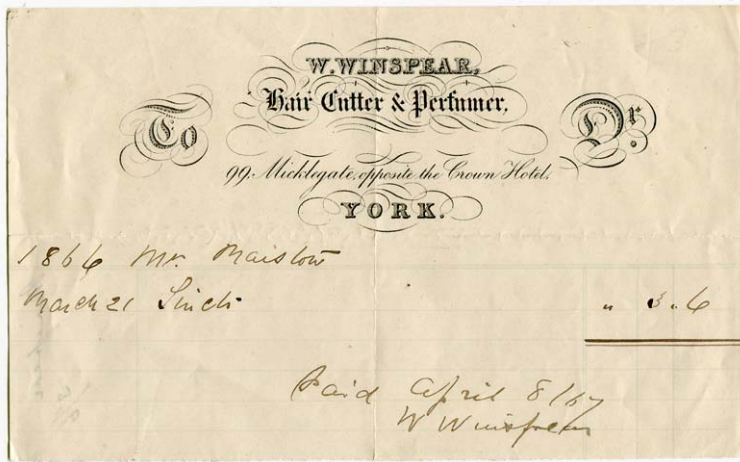 W. WINSPEAR,
Hair Cutter & Perfumer,
To Dr.
99, Micklegate, opposite the Crown Hotel,
YORK.
1866 Mr.
March 21
" 3 " 6
Paid April 8/67
W Winspear